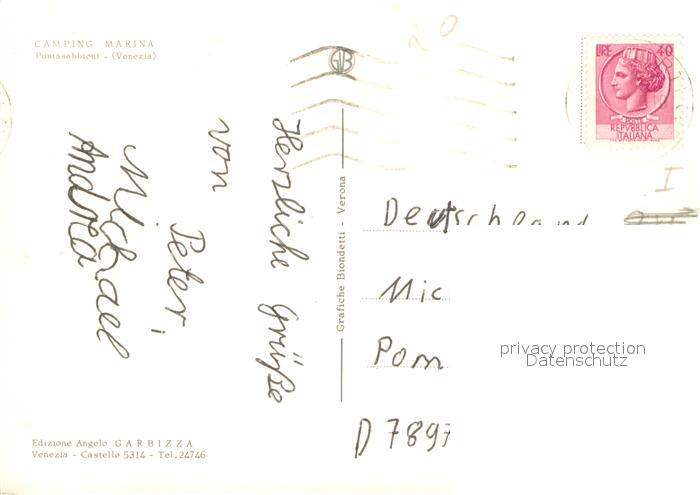 CAMPING MARINA
Puntasabbioni - (Venezia)
Herzliche Grüße
von
Peter,
Michael
Andrea
GB
Grafiche Biondetti - Verona
20
LIRE 40
POSTE
REPVBBLICA
ITALIANA
I
Deutschland
Mic
Pom
D 7897
privacy protection
Datenschutz
Edizione Angelo GARBIZZA
Venezia - Castello 5314 - Tel. 24746